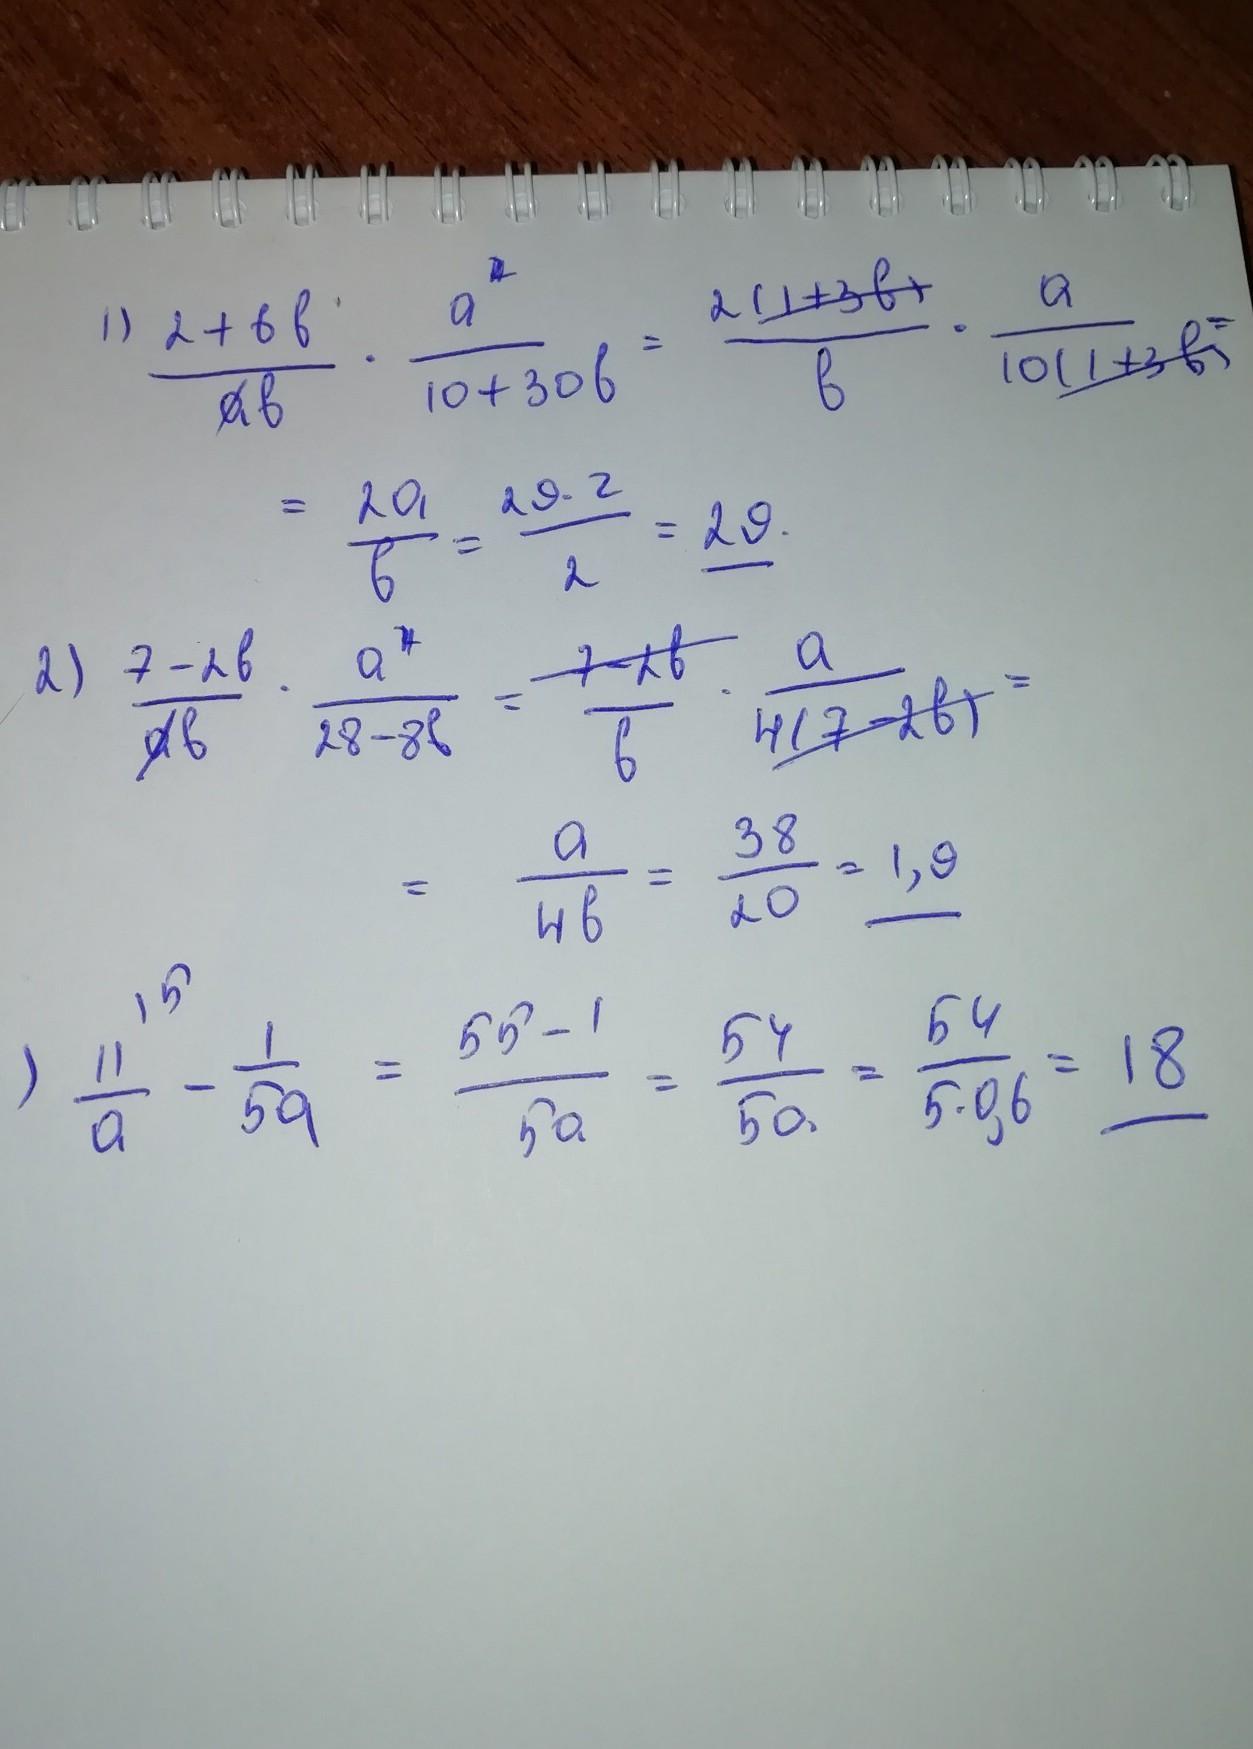 1) (2+6b)/(ab) · a²/(10+30b) = 2(1+3b)/b · a/(10(1+3b)) =
= 2a/b = 29·2/2 = 29.
2) (7-2b)/(ab) · a²/(28-8b) = (7-2b)/b · a/(4(7-2b)) =
= a/(4b) = 38/20 = 1,9
) 11/a ⁽⁵ - 1/(5a) = (55-1)/(5a) = 54/(5a) = 54/(5·0,6) = 18